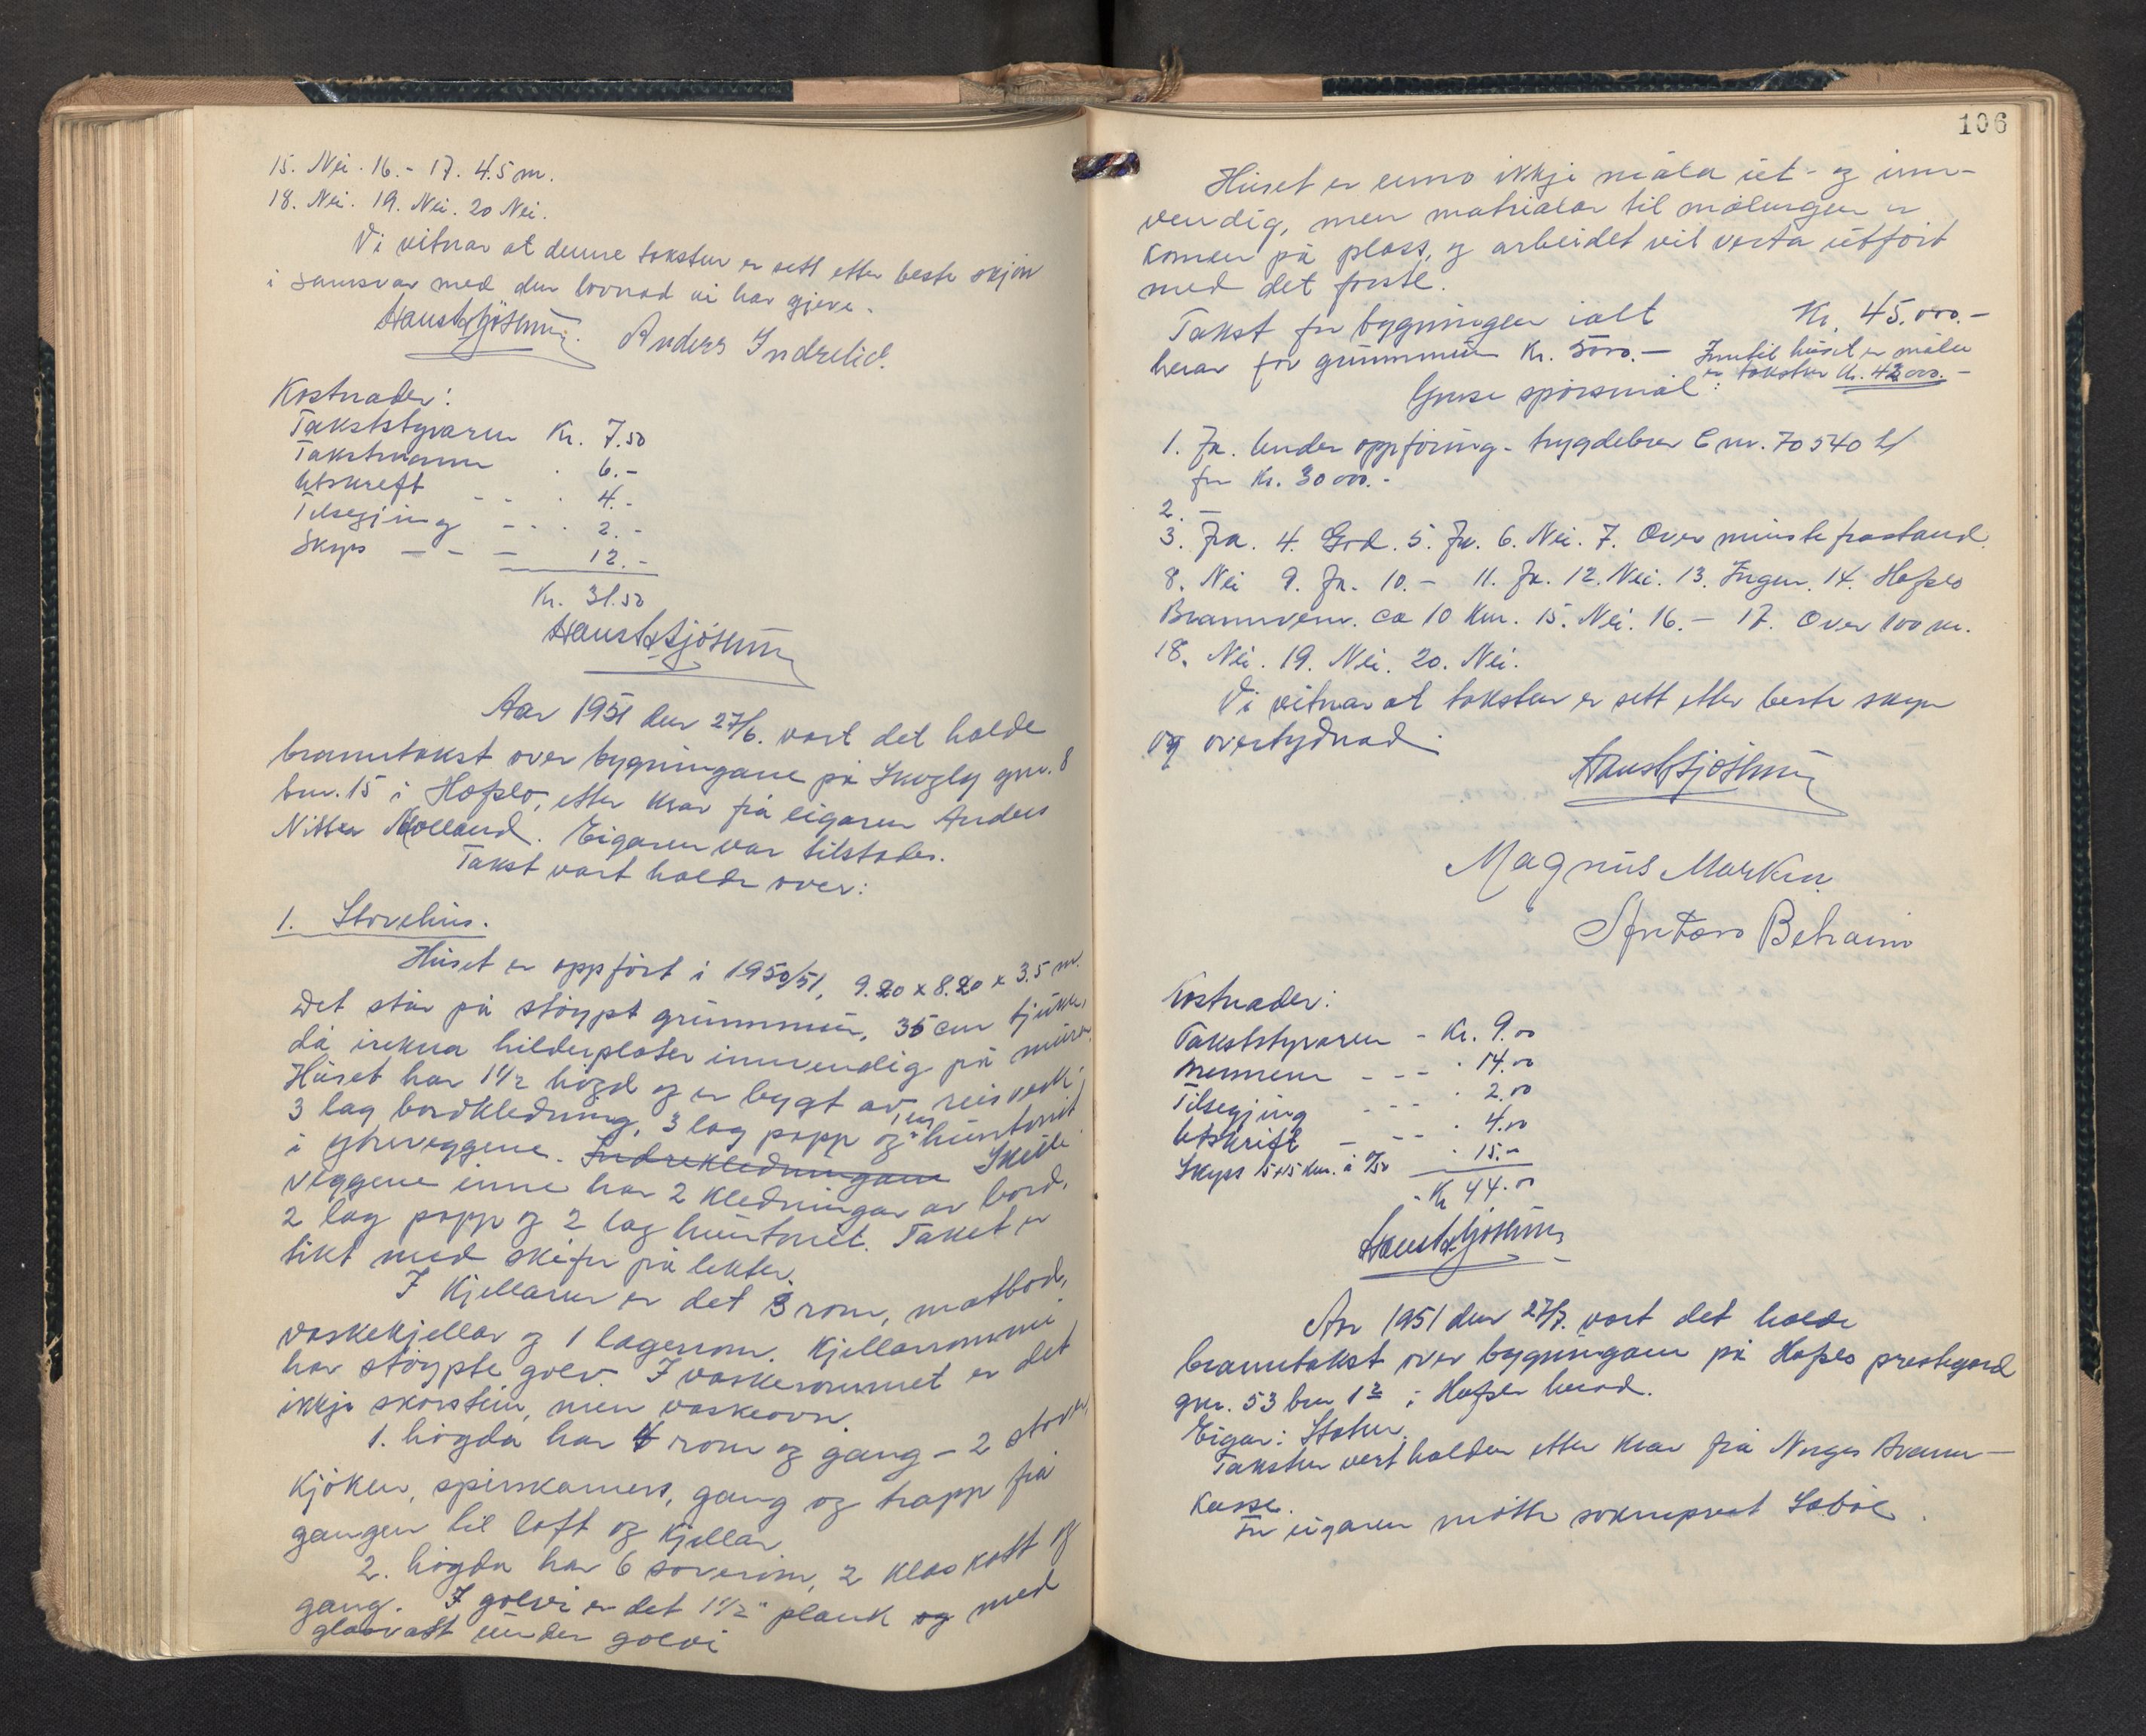 15. Nei. 16.- 17. 4.5 m.
18. Nei. 19. Nei. 20 Nei.
Vi vitnar at denne taksten er sett etter beste skjön
i samsvar med den lovnad vi har gjeve.
Anders Indrelid.
Kostnader:
Takststyraren Kr. 7.50
Takstmann . 6.-
Utskrift - - . 4.-
Tilsegjing - - . 2.-
Skyss - - - 12.-
Kr. 31.50
Aar 1951 den 27/6. vart det halde
branntakst over bygningane på Skogly gnr. 8
bnr. 15 i Hafslo, etter krav frå eigaren Anders
Nitter Molland. Eigaren var tilstades.
Takst vart halde over:
1. Stovehus.
Huset er oppfört i 1950/51, 9.20 x 8.20 x 3.5 m.
Det står på stöypt grunnmur, 35 cm tjukk,
då irekna hilderplater innvendig på muren.
Huset har 1 1/2 högd og er bygt av reisverk.
3 lag bordkledning, 3 lag papp og 1 lag huntonit
i ytreveggene. Indrekledningane Skille
veggene inne har 2 kledningar av bord,
2 lag papp og 2 lag huntonit. Taket er
tikt med skifer på lekter.
I Kjellaren er det 3 rom, matbod,
vaskekjellar og 1 lagerrom. Kjellarrommi
har stöypte golv. I vaskerommet er det
ikkje skorstein, men vaskeovn.
1. högda har 4 rom og gang - 2 stover,
kjöken, spiskamers, gang og trapp frå
gangen til loft og kjellar
2. högda har 6 soverom, 2 kleskott og
gang. I golvi er det 1 1/2" plank og med
glasvatt under golvi
106
Huset er enno ikkje måla ut- og inn-
vendig, men matrialar til målingen er
komen på plass, og arbeidet vil verta utfört
med det förste.
Takst for bygningen ialt Kr. 45.000.-
herav for grunnmuren Kr. 5000.- Inntil huset er måla
er taksten Kr. 42000.-
Gruse spörsmål:
1. Ja. Under oppföring - trygdebrev C nr. 70540
for Kr. 30000.-
2. -
3. Ja. 4. God. 5. Ja. 6. Nei. 7. Over minste frastand.
8. Nei 9. Ja. 10. - 11. Ja. 12. Nei. 13. Ingen. 14. Hafslo
Brannvern. ca 10 km. 15. Nei. 16. - 17. Over 100 m.
18. Nei. 19. Nei. 20. Nei.
Vi vitnar at taksten er sett etter beste skjön
og overtydnad.
Magnus Marken
Kostnader:
Takststyraren - Kr. 9.00
Mennene - - - . 14.00
Tilsegjing - - - . 2.00
Utskrift - - - . 4.00
Skyss 15+15 km. á 0/50 . 15.-
Kr 44.00
Aar 1951 den 27/7. vart det halde
branntakst over bygningane på Hafslo prestegard
gnr. 53 bnr 1 i Hafslo herad.
Eigar: Staten.
Taksten vert halden etter krav frå Norges Brann-
kasse.
For eigaren mötte sokneprest